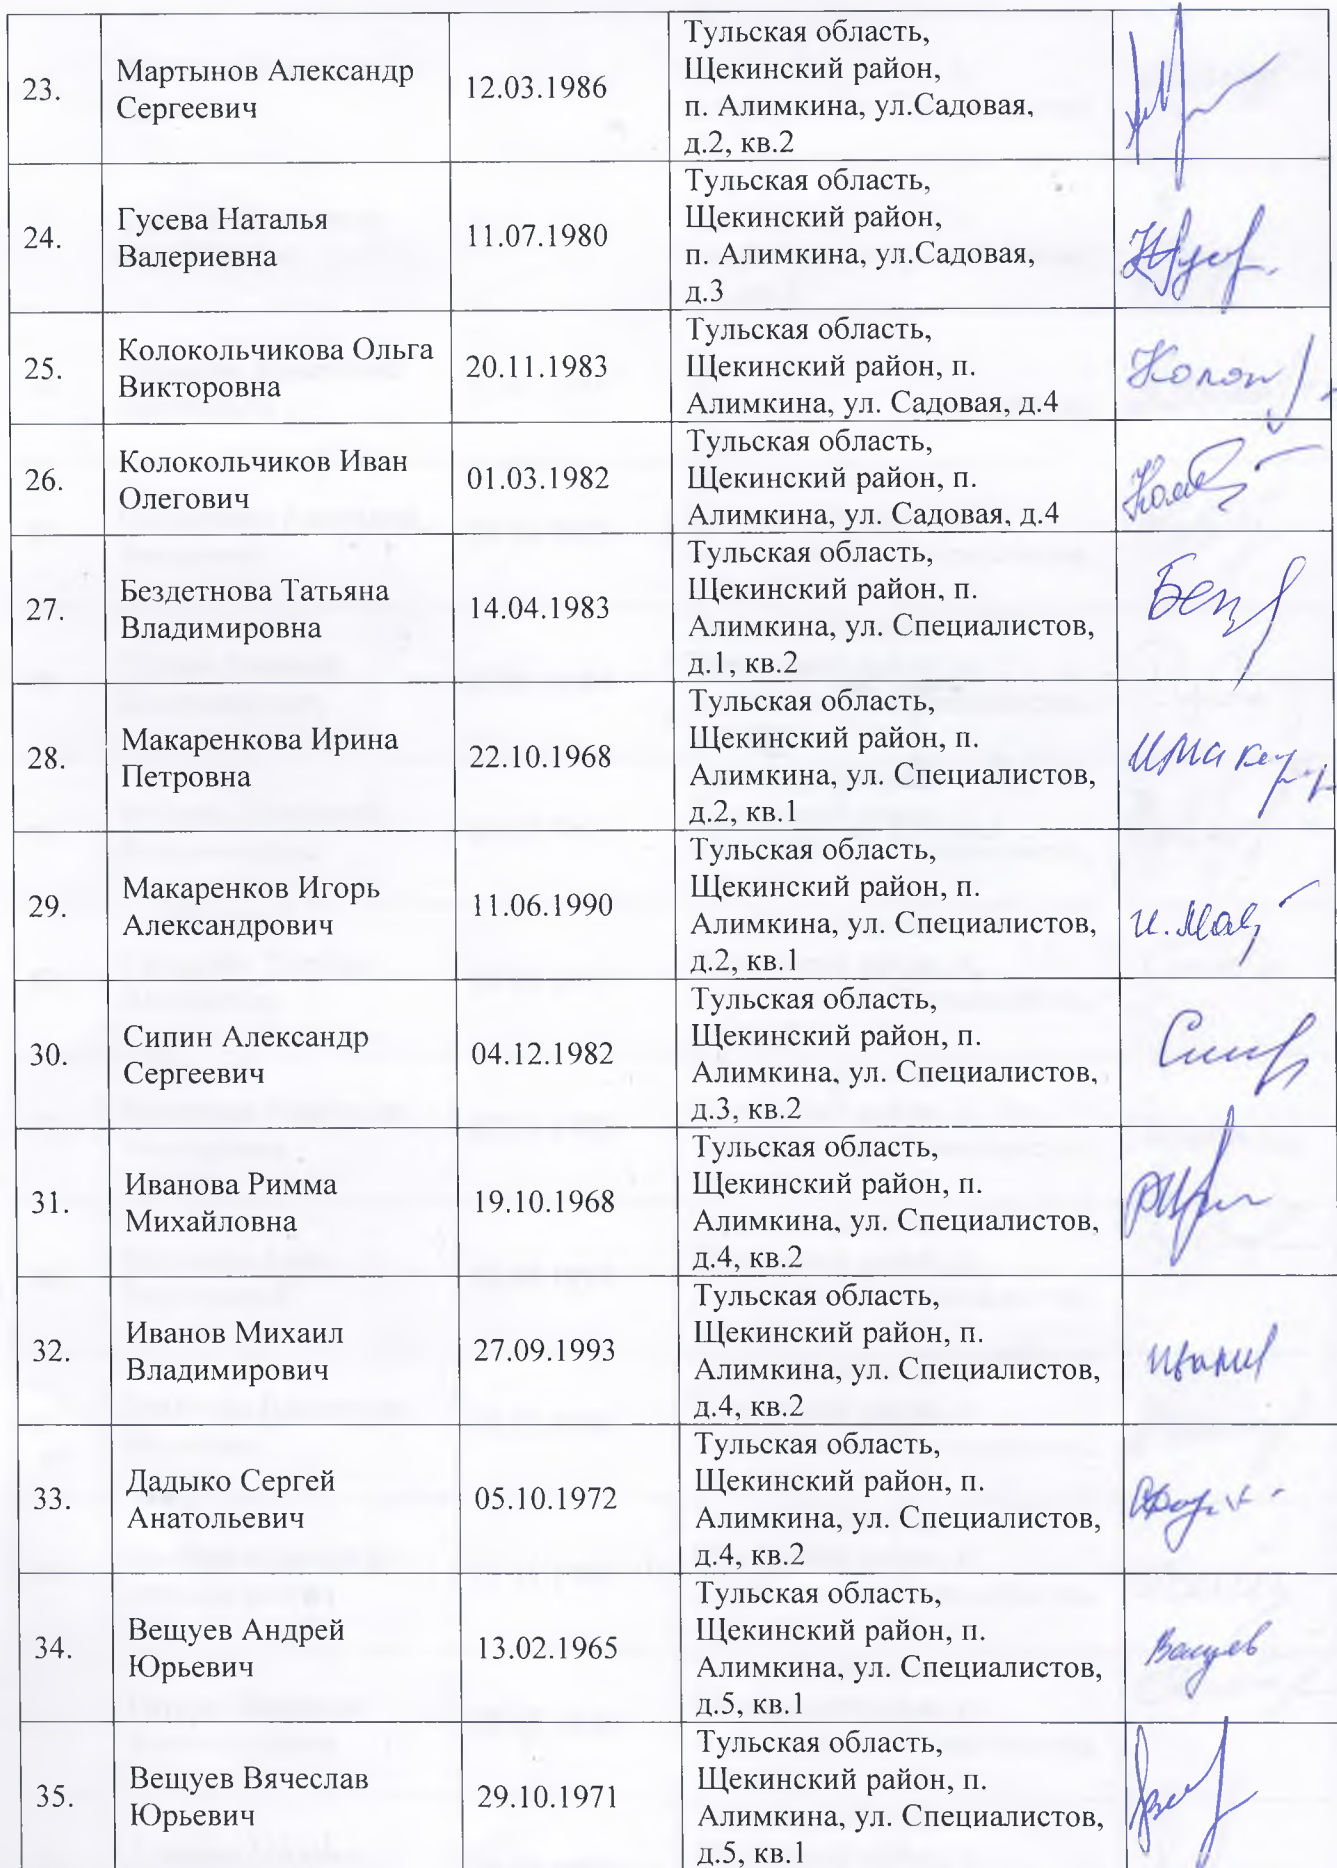 23.
Мартынов Александр
Сергеевич
12.03.1986
Тульская область,
Щекинский район,
п. Алимкина, ул.Садовая,
д.2, кв.2
24.
Гусева Наталья
Валериевна
11.07.1980
Тульская область,
Щекинский район,
п. Алимкина, ул.Садовая,
д.3
25.
Колокольчикова Ольга
Викторовна
20.11.1983
Тульская область,
Щекинский район, п.
Алимкина, ул. Садовая, д.4
26.
Колокольчиков Иван
Олегович
01.03.1982
Тульская область,
Щекинский район, п.
Алимкина, ул. Садовая, д.4
27.
Бездетнова Татьяна
Владимировна
14.04.1983
Тульская область,
Щекинский район, п.
Алимкина, ул. Специалистов,
д.1, кв.2
28.
Макаренкова Ирина
Петровна
22.10.1968
Тульская область,
Щекинский район, п.
Алимкина, ул. Специалистов,
д.2, кв.1
29.
Макаренков Игорь
Александрович
11.06.1990
Тульская область,
Щекинский район, п.
Алимкина, ул. Специалистов,
д.2, кв.1
30.
Сипин Александр
Сергеевич
04.12.1982
Тульская область,
Щекинский район, п.
Алимкина, ул. Специалистов,
д.3, кв.2
31.
Иванова Римма
Михайловна
19.10.1968
Тульская область,
Щекинский район, п.
Алимкина, ул. Специалистов,
д.4, кв.2
32.
Иванов Михаил
Владимирович
27.09.1993
Тульская область,
Щекинский район, п.
Алимкина, ул. Специалистов,
д.4, кв.2
33.
Дадыко Сергей
Анатольевич
05.10.1972
Тульская область,
Щекинский район, п.
Алимкина, ул. Специалистов,
д.4, кв.2
34.
Вещуев Андрей
Юрьевич
13.02.1965
Тульская область,
Щекинский район, п.
Алимкина, ул. Специалистов,
д.5, кв.1
35.
Вещуев Вячеслав
Юрьевич
29.10.1971
Тульская область,
Щекинский район, п.
Алимкина, ул. Специалистов,
д.5, кв.1